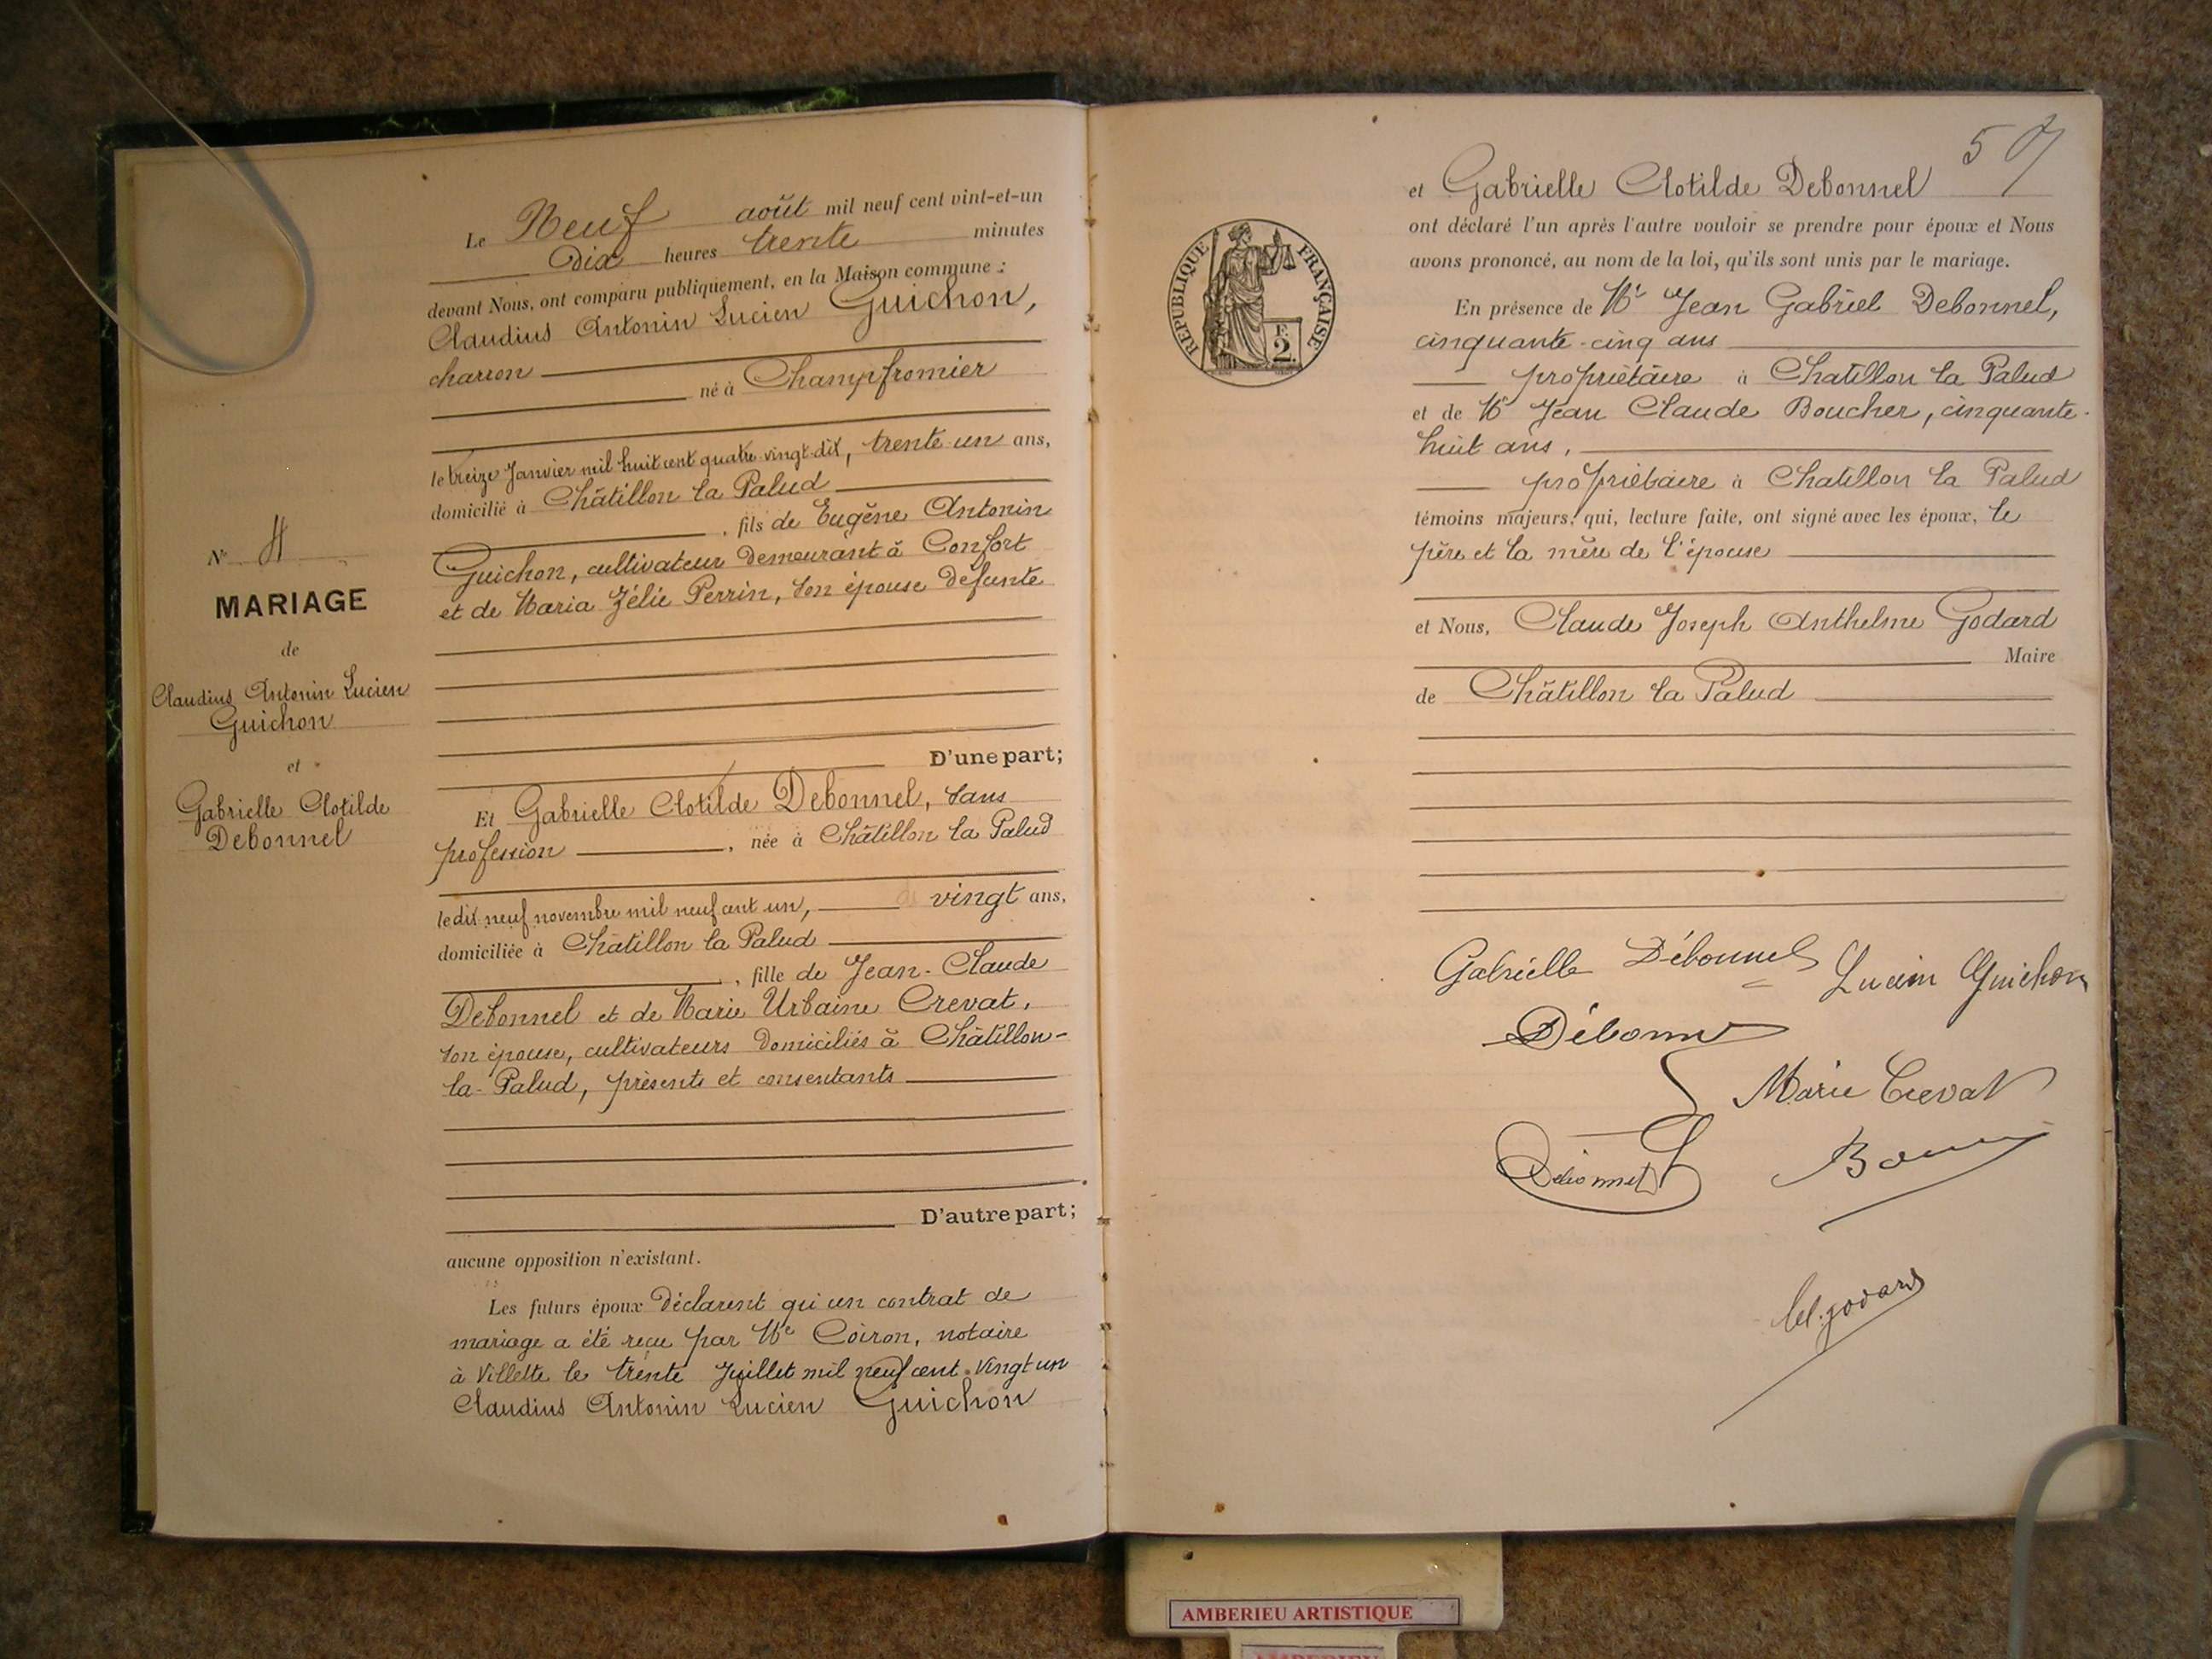 Le Neuf août mil neuf cent vint-et-un
Dix heures trente minutes
devant Nous, ont comparu publiquement, en la Maison commune :
Claudius Antonin Lucien Guichon,
charron
né à Champfromier
le treize Janvier mil huit cent quatre-vingt-dix, trente-un ans,
domicilié à Châtillon la Palud
, fils de Eugène Antonin
Guichon, cultivateur demeurant à Confort
et de Maria Zélie Perrin, son épouse défunte
N° 4
MARIAGE
de
Claudius Antonin Lucien
Guichon
et
Gabrielle Clotilde
Debonnel
D'une part;
Et Gabrielle Clotilde Debonnel, sans
profession , née à Châtillon la Palud
le dix-neuf novembre mil neuf cent un, vingt ans,
domiciliée à Châtillon la Palud
, fille de Jean-Claude
Debonnel et de Marie Urbaine Crevat,
son épouse, cultivateurs domiciliés à Châtillon-
la-Palud, présents et consentants
D'autre part;
aucune opposition n'existant.
Les futurs époux déclarent qu'un contrat de
mariage a été reçu par Me Coiron, notaire
à Villette le trente Juillet mil neuf cent vingt un
Claudius Antonin Lucien Guichon
57
et Gabrielle Clotilde Debonnel
ont déclaré l'un après l'autre vouloir se prendre pour époux et Nous
avons prononcé, au nom de la loi, qu'ils sont unis par le mariage.
RÉPUBLIQUE FRANÇAISE
F.
2.
En présence de Mr Jean Gabriel Debonnel,
cinquante-cinq ans
propriétaire à Chatillon la Palud
et de Mr Jean Claude Boucher, cinquante-
huit ans,
propriétaire à Chatillon la Palud
témoins majeurs, qui, lecture faite, ont signé avec les époux, le
père et la mère de l'épouse
et Nous, Claude Joseph Anthelme Godard
Maire
de Châtillon la Palud
Gabrielle Débonnel Lucien Guichon
Débonn
Marie Crevat
Débonnel
Godard
AMBERIEU ARTISTIQUE
AMBERIEU